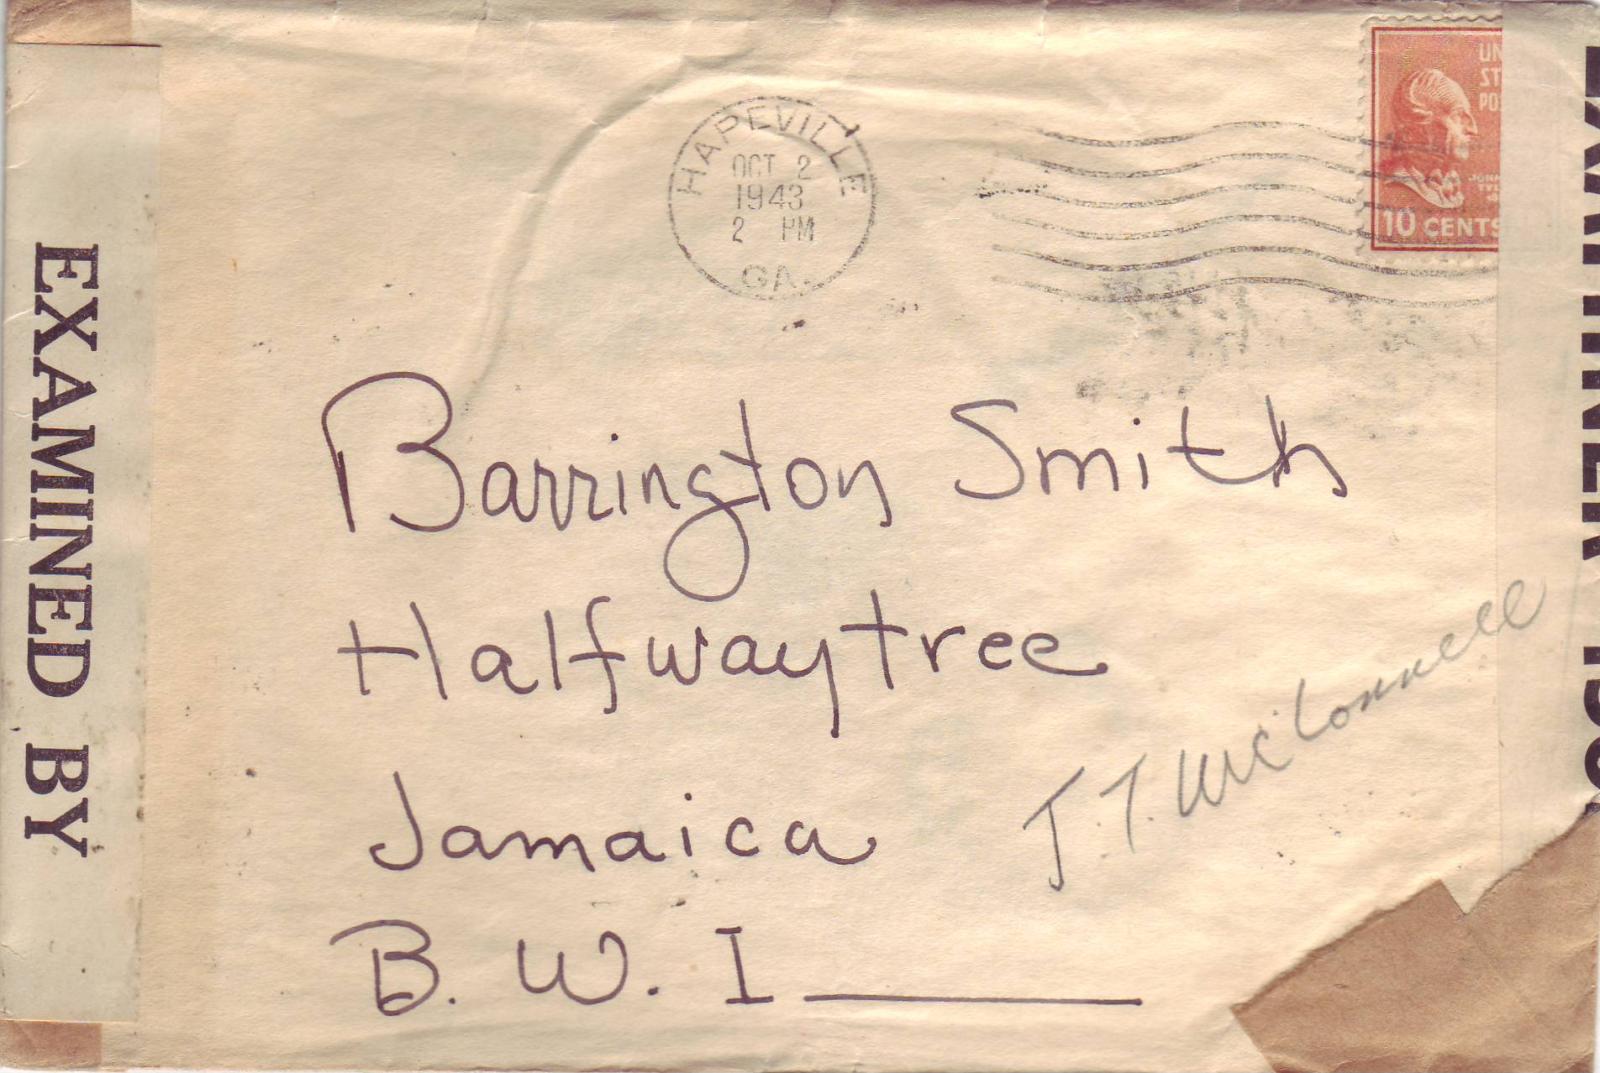 HAPEVILLE
OCT 2
1943
2 PM
GA.
UN
ST
PO
JOHN
TY
10 CENTS
Barrington Smith
Halfwaytree
Jamaica
B. W. I
J. T. McConnell
EXAMINED BY